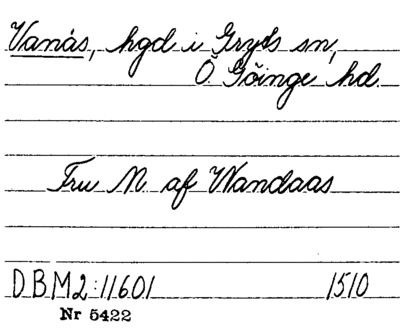 Vanås, hgd i Gryts sn,
Ö Göinge hd.
Fru N. af Wandaas
DBM2:11601 1510
Nr 5422